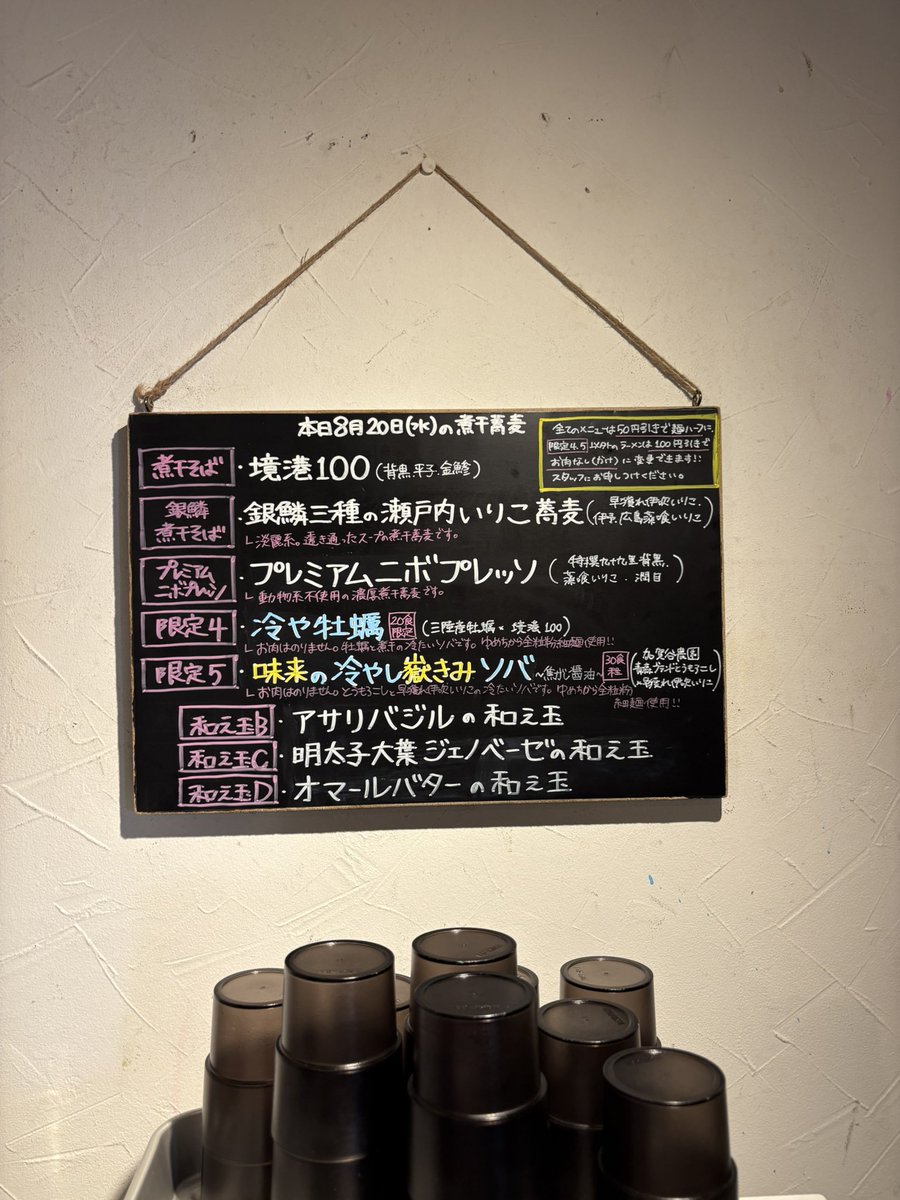 本日8月20日(水)の煮干蕎麦
全てのメニューは50円引きで麺ハーフに、
限定4.5以外のラーメンは100円引きで
お肉なし(かけ)に変更できます!!
スタッフにお申しつけください。
煮干そば・境港100(背黒.平子.金鯵)
銀鱗煮干そば・銀鱗三種の瀬戸内いりこ蕎麦(早獲れ伊吹いりこ、伊予.広島藻喰いりこ)
し淡麗系。透き通ったスープの煮干蕎麦です。
プレミアムニボプレッソ・プレミアムニボプレッソ(特撰九十九里背黒、藻喰いりこ.潤目)
し動物系不使用の濃厚煮干蕎麦です。
限定4・冷や牡蠣 20食限定(三陸産牡蠣×境港100)
しお肉はのりません。牡蠣と煮干の冷たいソバです。ゆめちから全粒粉細麺使用!!
限定5・味来の冷やし嶽きみソバ~焦がし醤油~30食程(加賀谷農園 青森ブランドとうもろこし×早獲れ伊吹いりこ)
しお肉はのりません。とうもろこしと早獲れ伊吹いりこの冷たいソバです。ゆめちから全粒粉
細麺使用!!
和え玉B・アサリバジルの和え玉
和え玉C・明太子大葉ジェノベーゼの和え玉
和え玉D・オマールバターの和え玉